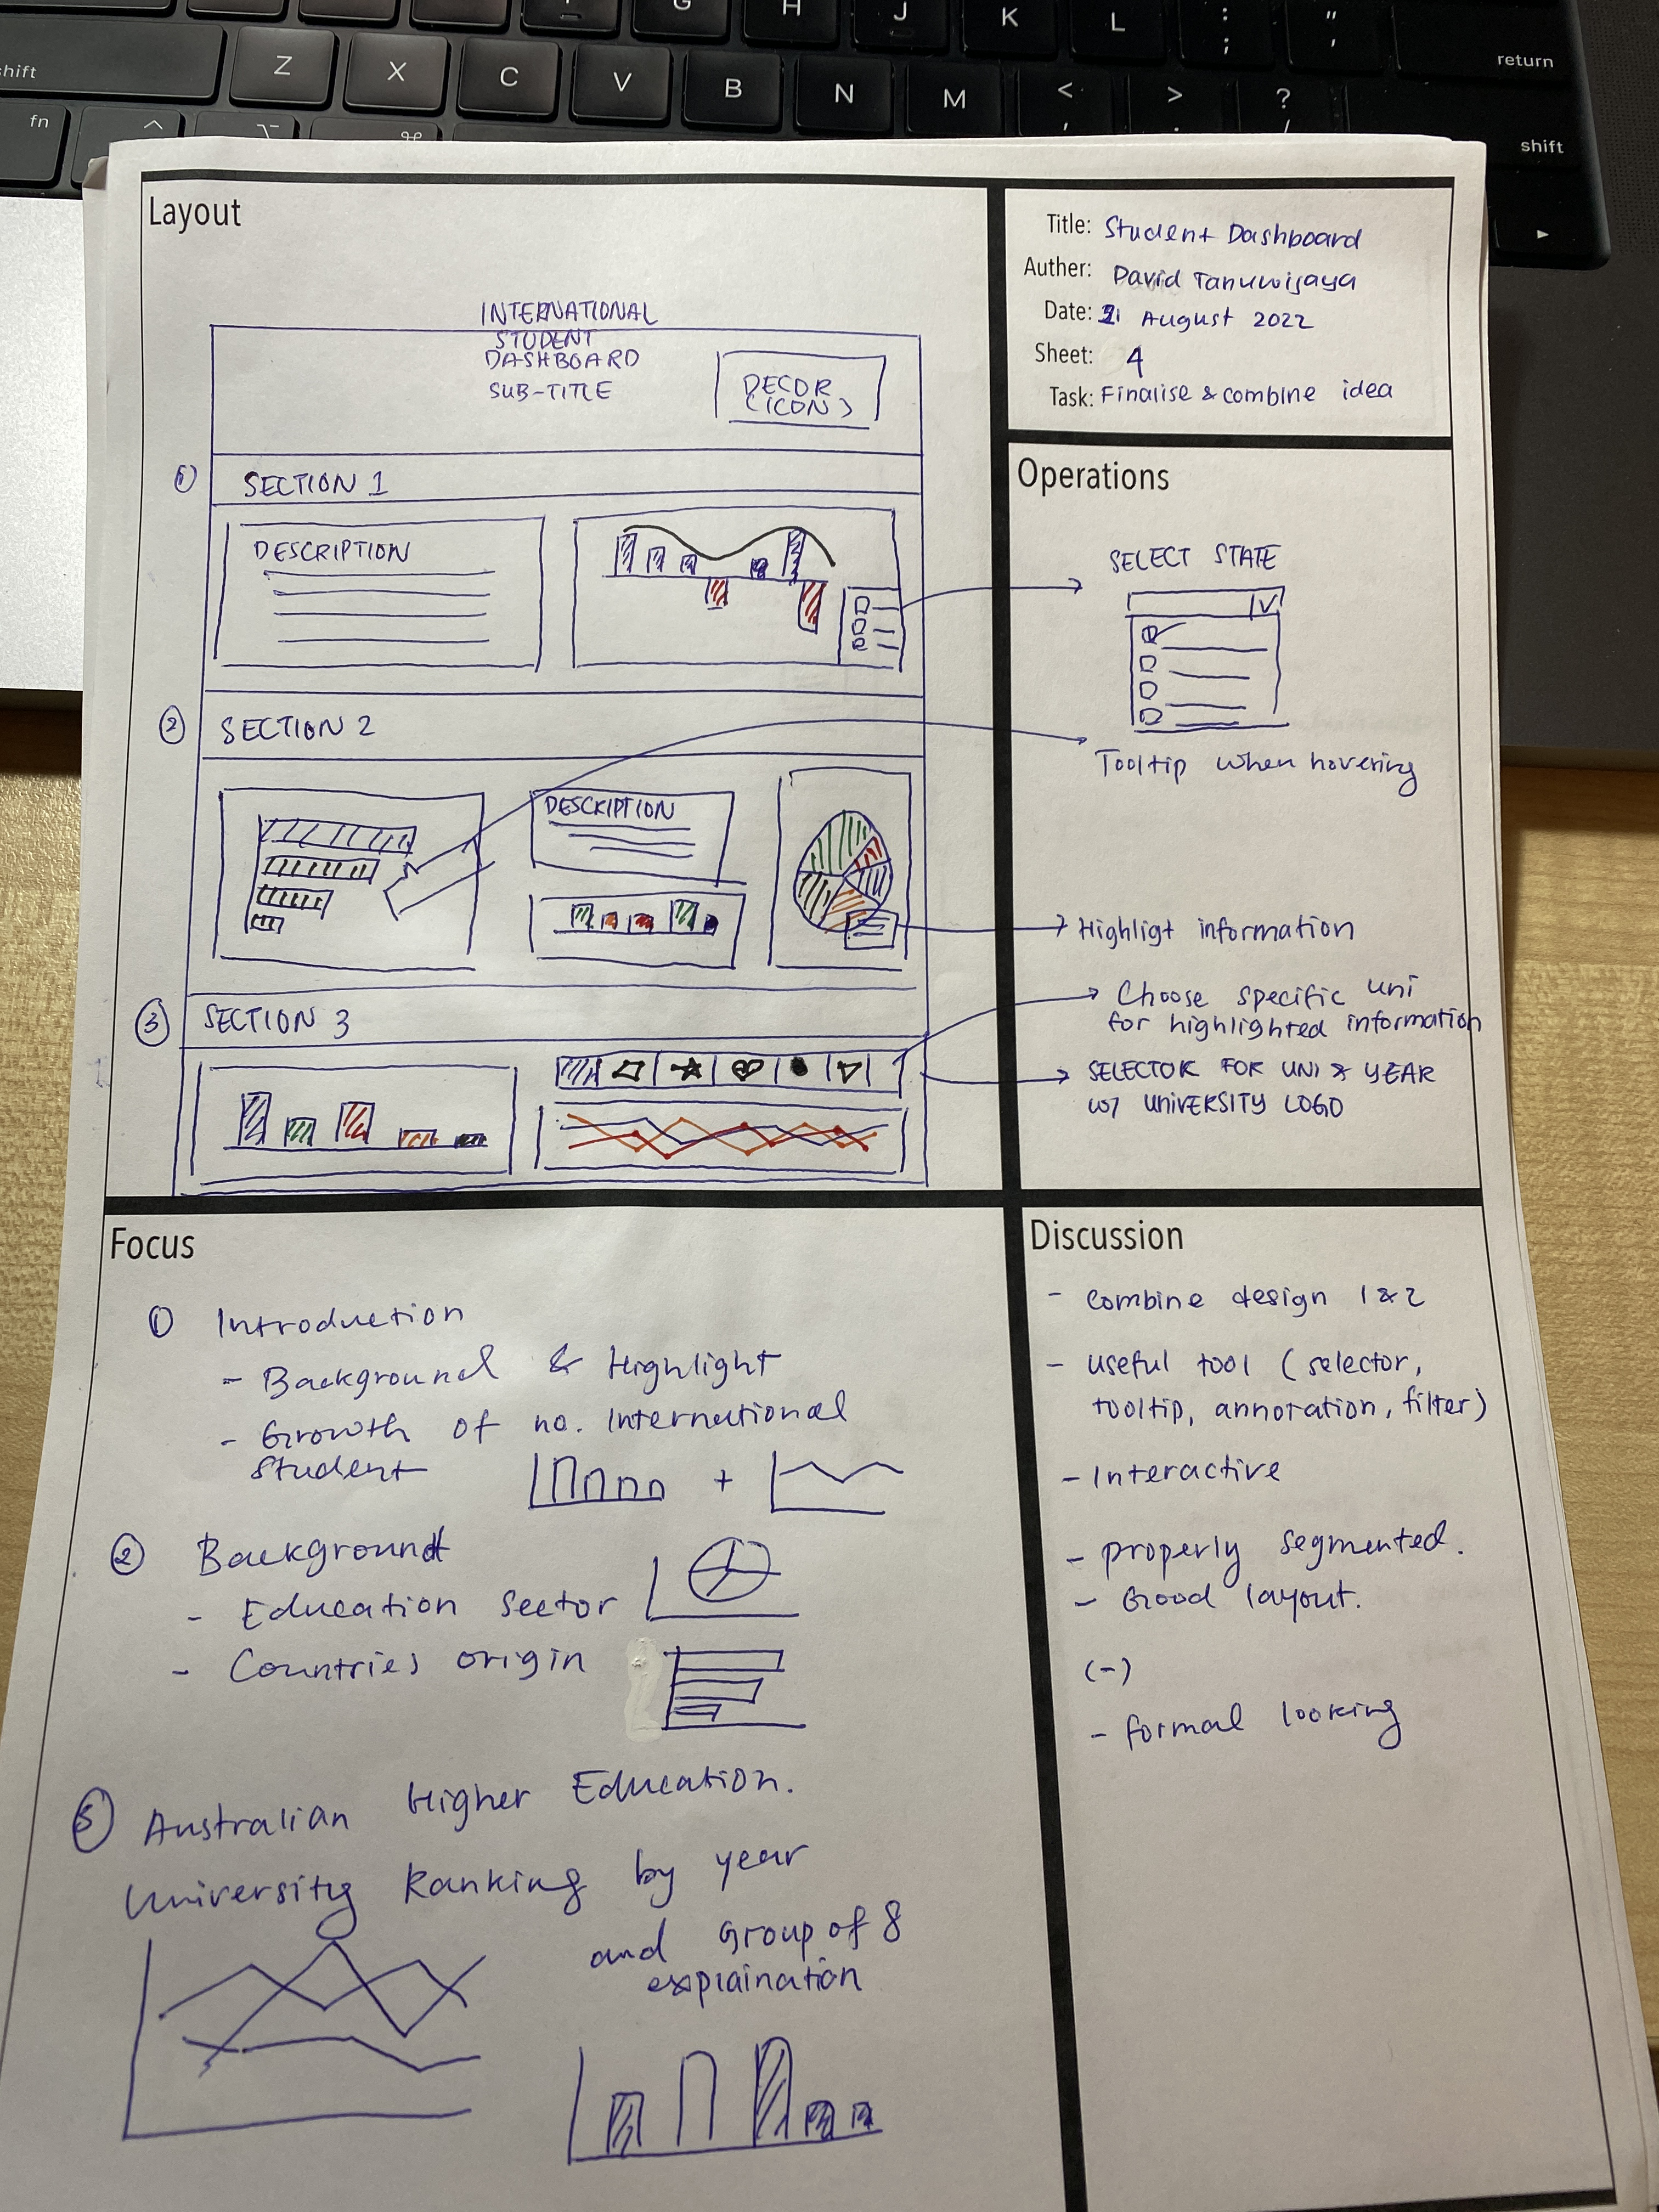 G
H
J
K
L
:
;
"
'
return
shift
Z
X
C
V
B
N
M
<
,
>
.
?
/
shift
fn
Layout
INTERNATIONAL
STUDENT
DASHBOARD
SUB-TITLE
DECOR
(ICON)
1
SECTION 1
DESCRIPTION
2
SECTION 2
DESCRIPTION
3
SECTION 3
Title: Student Dashboard
Auther: David Tanuwijaya
Date: August 2022
Sheet: 4
Task: Finalise & combine idea
Operations
SELECT STATE
Tooltip when hovering
Highligt information
Choose specific uni
for highlighted information
SELECTOR FOR UNI & YEAR
w/ UNIVERSITY LOGO
Focus
1 Introduction
- Background & Highlight
- Growth of no. International
Student
+
2 Background
- Education Sector
- Countries origin
3 Australian Higher Education.
University Ranking by year
and Group of 8
explaination
Discussion
- combine design 1 & 2
- useful tool (selector,
tooltip, annoration, filter)
- Interactive
- properly segmented.
- Good layout.
(-)
- formal looking